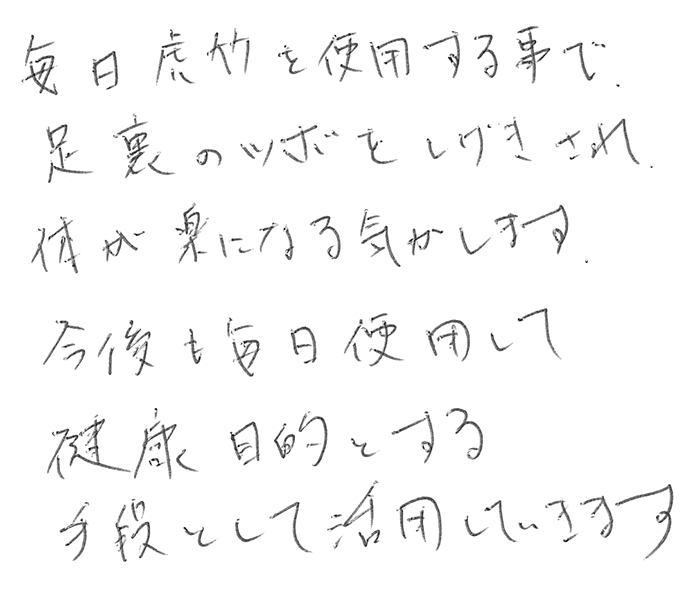 毎日虎竹を使用する事で、
足裏のツボをしげきされ、
体が楽になる気がします。
今後も毎日使用して
健康目的とする
手段として活用していきます